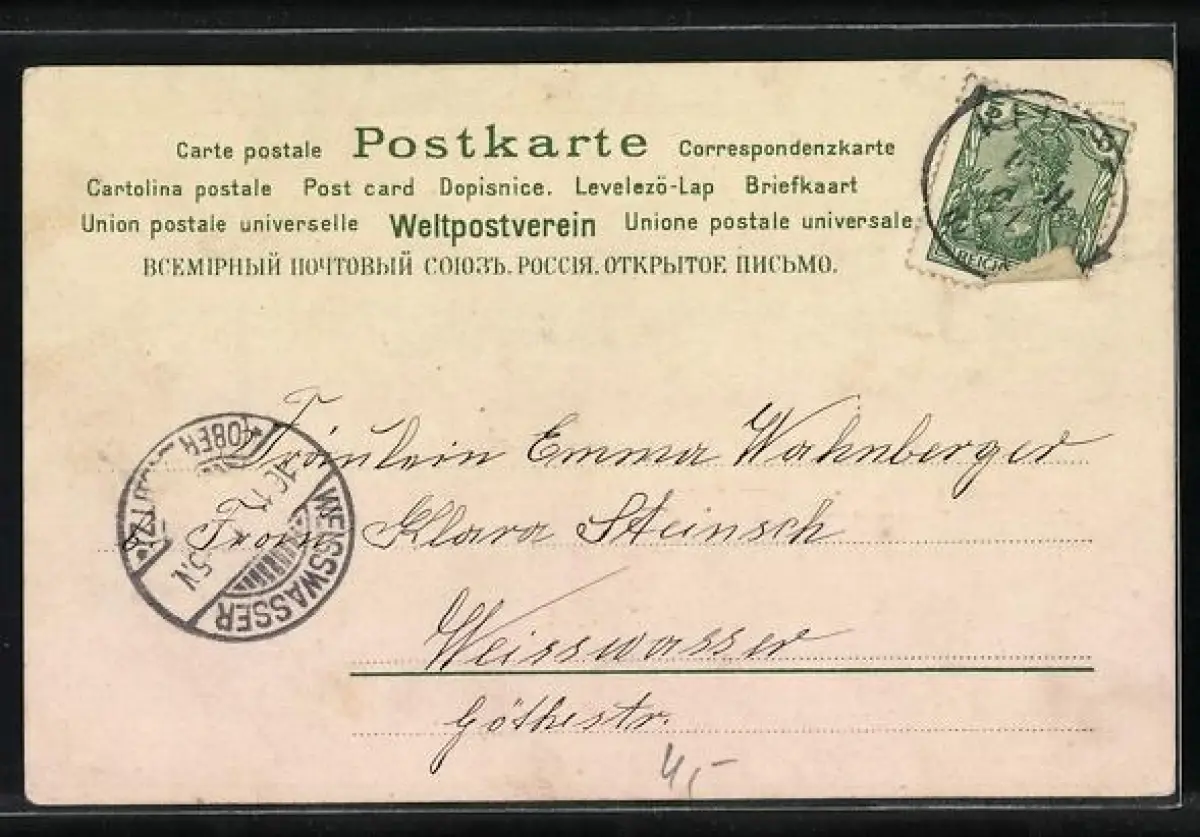 Carte postale Postkarte Correspondenzkarte
Cartolina postale Post card Dopisnice. Levelező-Lap Briefkaart
Union postale universelle Weltpostverein Unione postale universale
ВСЕМІРНЫЙ ПОЧТОВЫЙ СОЮЗЪ. РОССІЯ. ОТКРЫТОЕ ПИСЬМО.
Fräulein Emma Wahnberger
Klara Steinsch
Weisswasser
Göthestr.
4,-
WEISSWASSER